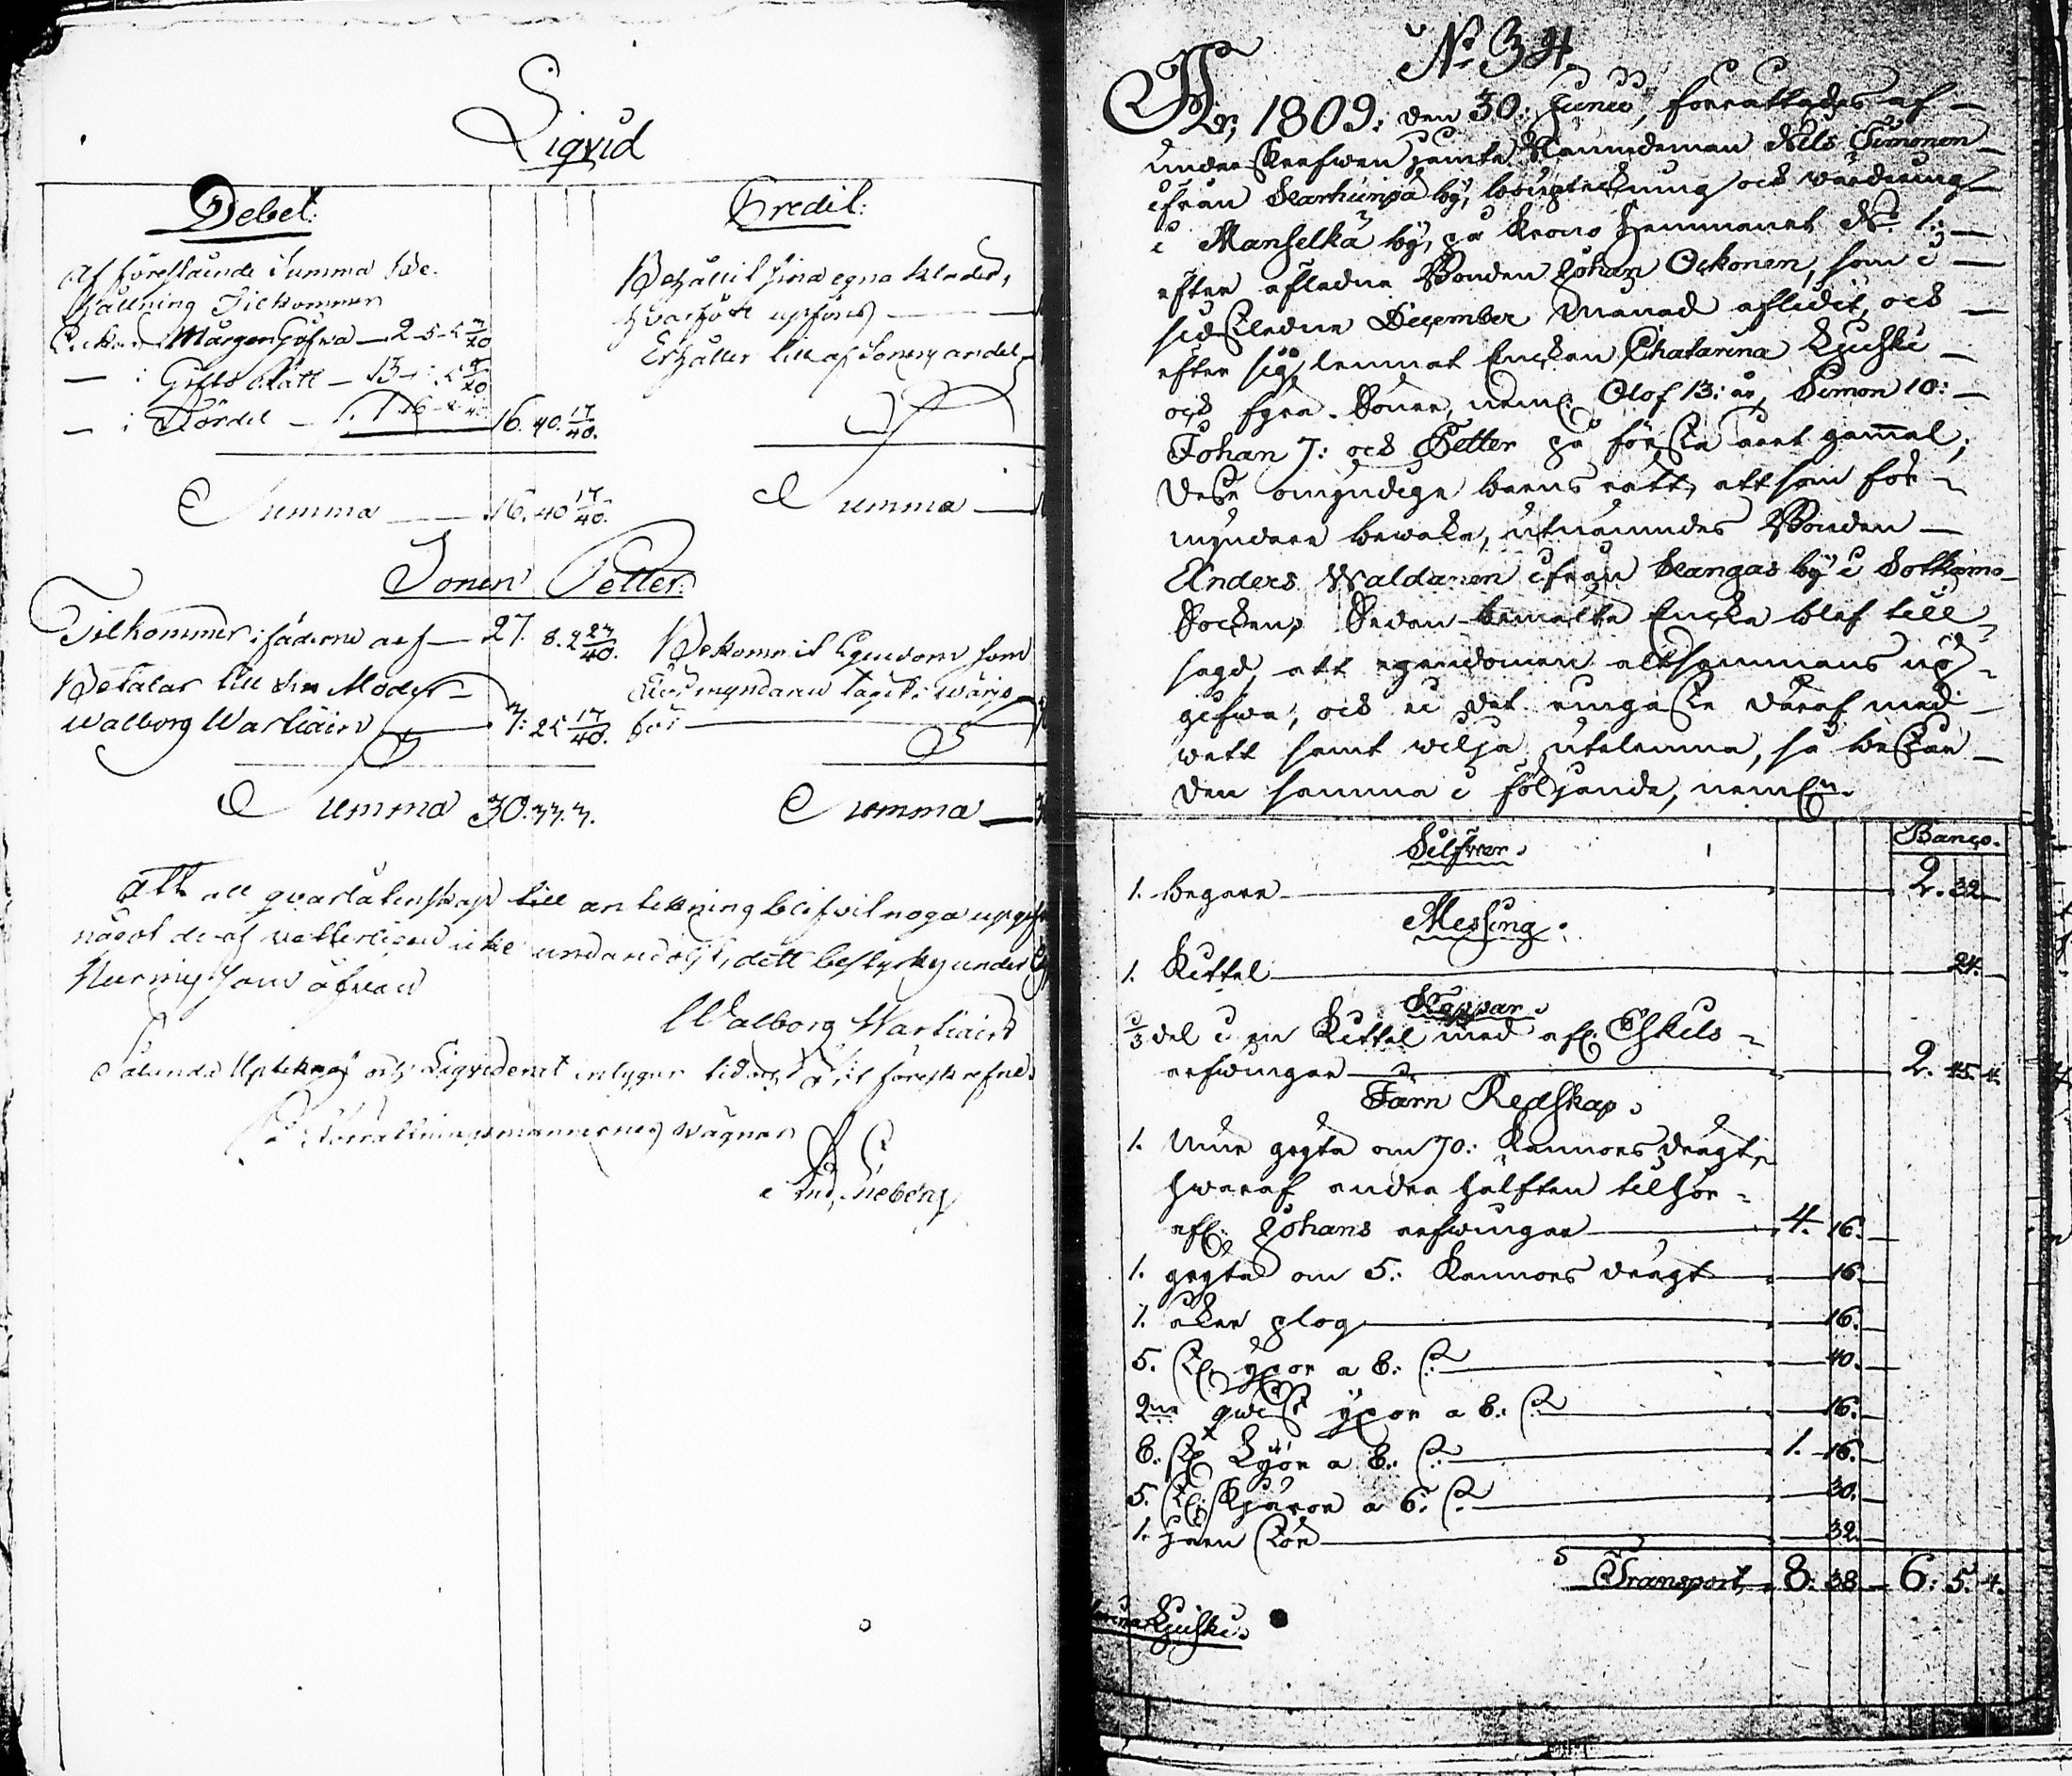 Liqvid
Debet:
Af föreståinde Summa be-
hållning Tilkommer
Enckan Margongåfwa — 2-5-5
— i Giftorätt — 13
— i Fördel — 16. 40. 17/40.
Summa — 16. 40 17/40.
Credit:
Behållit sina egna kläder,
hvarföre upföres —
Erhåller till af Sonens andel
Summa —
Sonen Petter:
Tilkommer i fäderne arf — 27. 8. 2 27/40.
Betalar till sin Moder
Walborg Wartiain — 3: 25 17/40.
Summa 30. 33. 3.
Bekommit Egendom som
Förmyndaren tagit i wärjo
för —
Summa —
Att all qvarlåtenskap till antekning blifvit noga upgifven
något deraf vetterligen icke undandöljt, dett bestyrkes under
som ofvan
Walborg Wartiain
Sålunda Upteknat och Liqviderat intygar tid och Ställe föreskrefne
På Förrättningsmännernes wägnar
And. Sieberg
No 34.
År 1809: den 30: Junii, förrättades af —
underskrefwen jemte Nämndeman Nils Simonen —
ifrån Karhunpä by, boupteckning och wärdering
i Manselkä by, på Krono Hemmanet No 1: —
efter afledne Bonden Johan Ockonen, som i —
sidstledne December Månad aflidit, och —
efter sig lemnat Enckan Chatarina Kjuhki —
och fyra Söner, neml: Olof 13: år, Simon 10: —
Johan 7: och Petter på första året gammal;
desse omyndige barns rätt, att som för-
myndare bewaka, utnämndes Bonden —
Anders Waldanen ifrån Kangas by i Sotkamo
Socken, Sedan bemälte Encka blef till-
sagd, att egendomen altsammans up-
gifwa, och ei det ringaste däraf med
wett samt wilja utelemna, så består —
den samma i följande, nemln.
Banco.
Silfwer.
1. begare — 2. 32
Messing.
1. Kettel — 24.
Koppar.
2/3 del i en Kettel med afl: Eskils-
arfwingar — 2. 45. 4.
Järn Redskap.
1. Mur gryta om 70: Kannors drägt,
hwaraf andra hälften tilhör-
afl: Johans arfwingar — 4. 16. —
1. gryta om 5: Kannors drägt — 16. —
1. åker plog — 16. —
5. St: yxor a 8: s — 40. —
2ne qwist yxor a 8: s — 16. —
8. St: Lijor a 8: s — 1. 16. —
5. St: Skjäror a 6: s — 30. —
1. Järn stör — 32. —
Transport 8. 38 — 6. 5. 4.
Kjuhki.